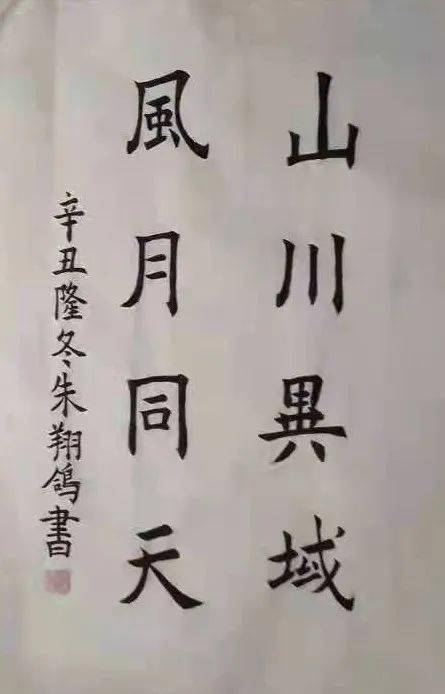 山川異域
風月同天
辛丑隆冬朱翔鴿書